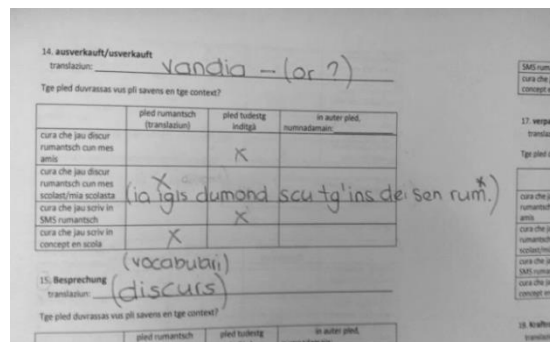 14. ausverkauft/usverkauft
translaziun: vandia - (or ?)
Tge pled duvrassas vus pli savens en tge context?
pled rumantsch (translaziun)
pled tudestg inditgà
in auter pled, numnadamain:
cura che jau discur rumantsch cun mes amis
X
cura che jau discur rumantsch cun mes scolast/mia scolasta
X
(ia igis dumond scu tg'ins dei sen rum.)
x
cura che jau scriv in SMS rumantsch
X
cura che jau scriv in concept en scola
X
(vocabulari)
15. Besprechung
translaziun: (discurs)
Tge pled duvrassas vus pli savens en tge context?
pled rumantsch
pled tudestg
in auter pled,
SMS rum
cura che
concept e
17. verpa
transla
Tge pled
cura che j
rumantsc
amis
cura che j
rumantsc
scolast/m
cura che j
SMS ruma
cura che j
concept e